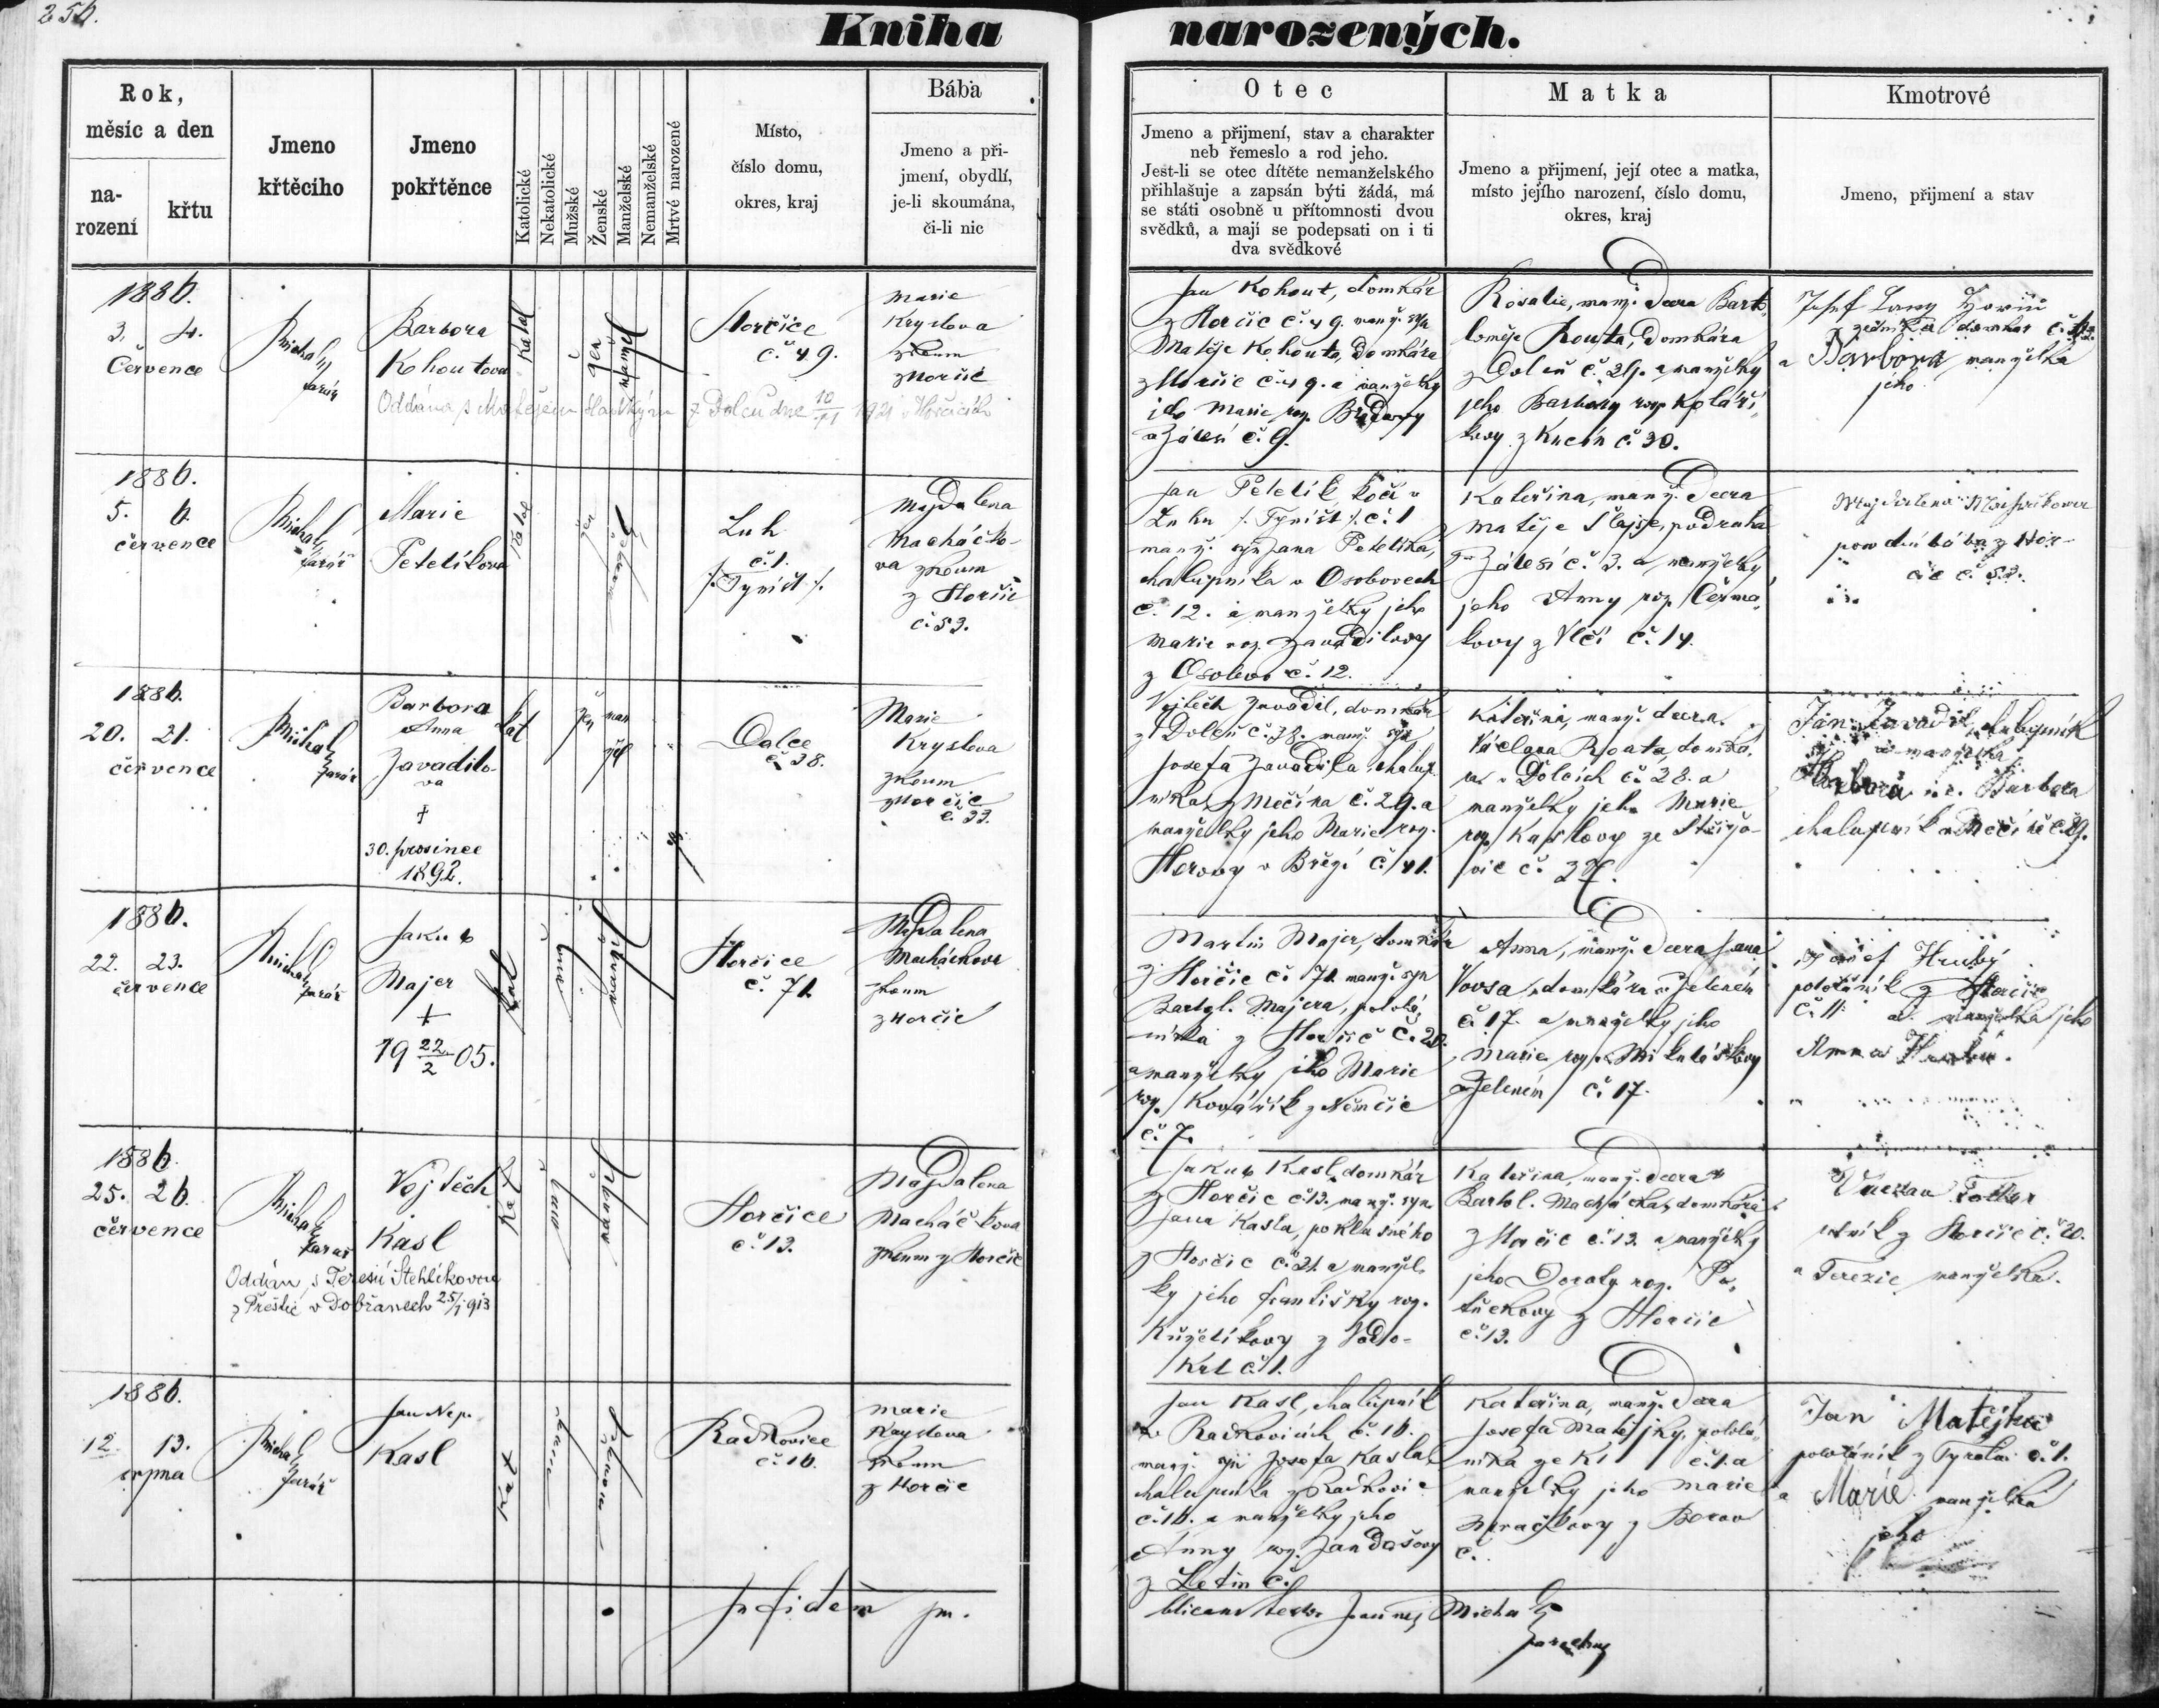 256.
Kniha narozených.
Rok,
měsíc a den
na-
rození
křtu
Jmeno
křtěcího
Jmeno
pokřtěnce
Katolické
Nekatolické
Mužské
Ženské
Manželské
Nemanželské
Mrtvé narozené
Místo,
číslo domu,
okres, kraj
Bába
Jmeno a při-
jmení, obydlí,
je-li skoumána,
či-li nic
Otec
Jmeno a přijmení, stav a charakter
neb řemeslo a rod jeho.
Jest-li se otec dítěte nemanželského
přihlašuje a zapsán býti žádá, má
se státi osobně u přítomnosti dvou
svědků, a mají se podepsati on i ti
dva svědkové
Matka
Jmeno a přijmení, její otec a matka,
místo jejího narození, číslo domu,
okres, kraj
Kmotrové
Jmeno, přijmení a stav
1886.
3. 4.
Července
Michal
farář
Barbora
Kohoutova
Katol
žen
manžel
Horčice
č. 49.
Marie
Kryslova
zkoum
z Horčic
Oddána s Matějem z Dolců dne 10/11 1921 v Horčicích
Jan Kohout, domkář
z Horčic č. 49. manž. syn
Matěje Kohouta, domkáře
z Horčic č. 49. a manželky
jeho Marie roz.
Zálesí č. 9.
Rosalie, manž. dcera Barto
loměje Routa, domkáře
z Dolců č. a manželky
jeho Barbory roz. Kolaří
kovy z Kucín č. 30.
Josef
a Barbora manželka
jeho
1886.
5. 6.
července
Michal
farář
Marie
Petelíkova
Katol
žen
manžel
Luh
č. 1.
/: Týništ :/.
Magdalena
Macháčko-
va zkoum
z Horčic
č. 53.
Jan Petelík, kočí v
Luhu /: Týništ :/. č. 1
manž. syn Jana Petelíka,
chalupníka v Osoborech
č. 12. a manželky jeho
Marie roz. Zavadilovy
z Osobov č. 12.
Kateřina, manž. dcera
Matěje Šlajse, podruha
Zálesí č. 3. a manželky
jeho Anny roz. Čermá
kovy z Vlčí č. 14.
Magdalena Macháčkova
bába z Hor-
čic č. 53.
1886.
20. 21.
července
Michal
farář
Barbora
Anna
Zavadilo-
va
†
30. prosince
1892.
Kat
žen
man
žel
Dolce
č. 38.
Marie
Kryslova
zkoum
z Horčic
č. 33.
Vojtěch Zavadil, domkář
z Dolců č. 38. manž. syn
Josefa Zavadila, chalup
níka z Mečína č. 29. a
manželky jeho Marie roz.
Herovy v Březí č. 41.
Kateřina, manž. dcera
Václava Routa, domká
ře v Dolcích č. 28. a
manželky jeho Marie
roz. Kaslovy ze Střížo-
vic č.
Jan Zavadil, chalupník
a manželka
Barbora
chalupník v Mečíně č. 29.
1886.
22. 23.
července
Michal
farář
Jakub
Majer
†
19 22/2 05.
Kat
muž
manžel
Horčice
č. 71.
Magdalena
Macháčkova
zkoum
z Horčic
Martin Majer, domkář
z Horčic č. 71. manž. syn
Bartol. Majera, pololá
níka z Horčic č. 20.
a manželky jeho Marie
roz. Kovářík z Němčic
č. 7.
Anna, manž. dcera Jana
Vovsa, domkáře v Jelením
č. 17. a manželky jeho
Marie roz. Mikulášovy
Jelením č. 17.
Josef Hrubý
pololáník z Horčic
č. 11. a manželka jeho
Anna
1886.
25. 26.
července
Michal
farář
Vojtěch
Kasl
Kat
muž
manžel
Horčice
č. 13.
Magdalena
Macháčkova
zkoum z Horčic
Oddán s Terezií Stehlíkovou
z Přeštic v Dobřanech 25/1 913
Jakub Kasl, domkář
z Horčic č. 13. manž. syn
Jana Kasla, poklasného
z Horčic č. 21. a manžel
ky jeho Františky roz.
Kuželíkovy z Vodo-
krt č. 1.
Kateřina, manž. dcera
Bartol. Macháčka, domkáře
z Horčic č. 13. a manželky
jeho Doroty roz. Pa
tučkovy z Horčic
č. 13.
Václav
z Horčic č. 20.
a Terezie manželka.
1886.
12. 13.
srpna
Michal
farář
Jan Nep.
Kasl
Kat
muž
manžel
Radkovice
č. 16.
Marie
Kryslova
zkoum
z Horčic
Jan Kasl, chalupník
v Radkovicích č. 16.
manž. syn Josefa Kasla
chalupníka z Radkovic
č. 16. a manželky jeho
Anny roz. Jandašovy
z Letin č.
Kateřina, manž. dcera
Josefa Matějky, pololá
níka ze č. 1. a
manželky jeho Marie
z Borov
č.
Jan Matějka
pololáník z č. 1.
a Marie manželka
jeho
In fidem pu
blicam testor Jan Nep. Michal
parochus